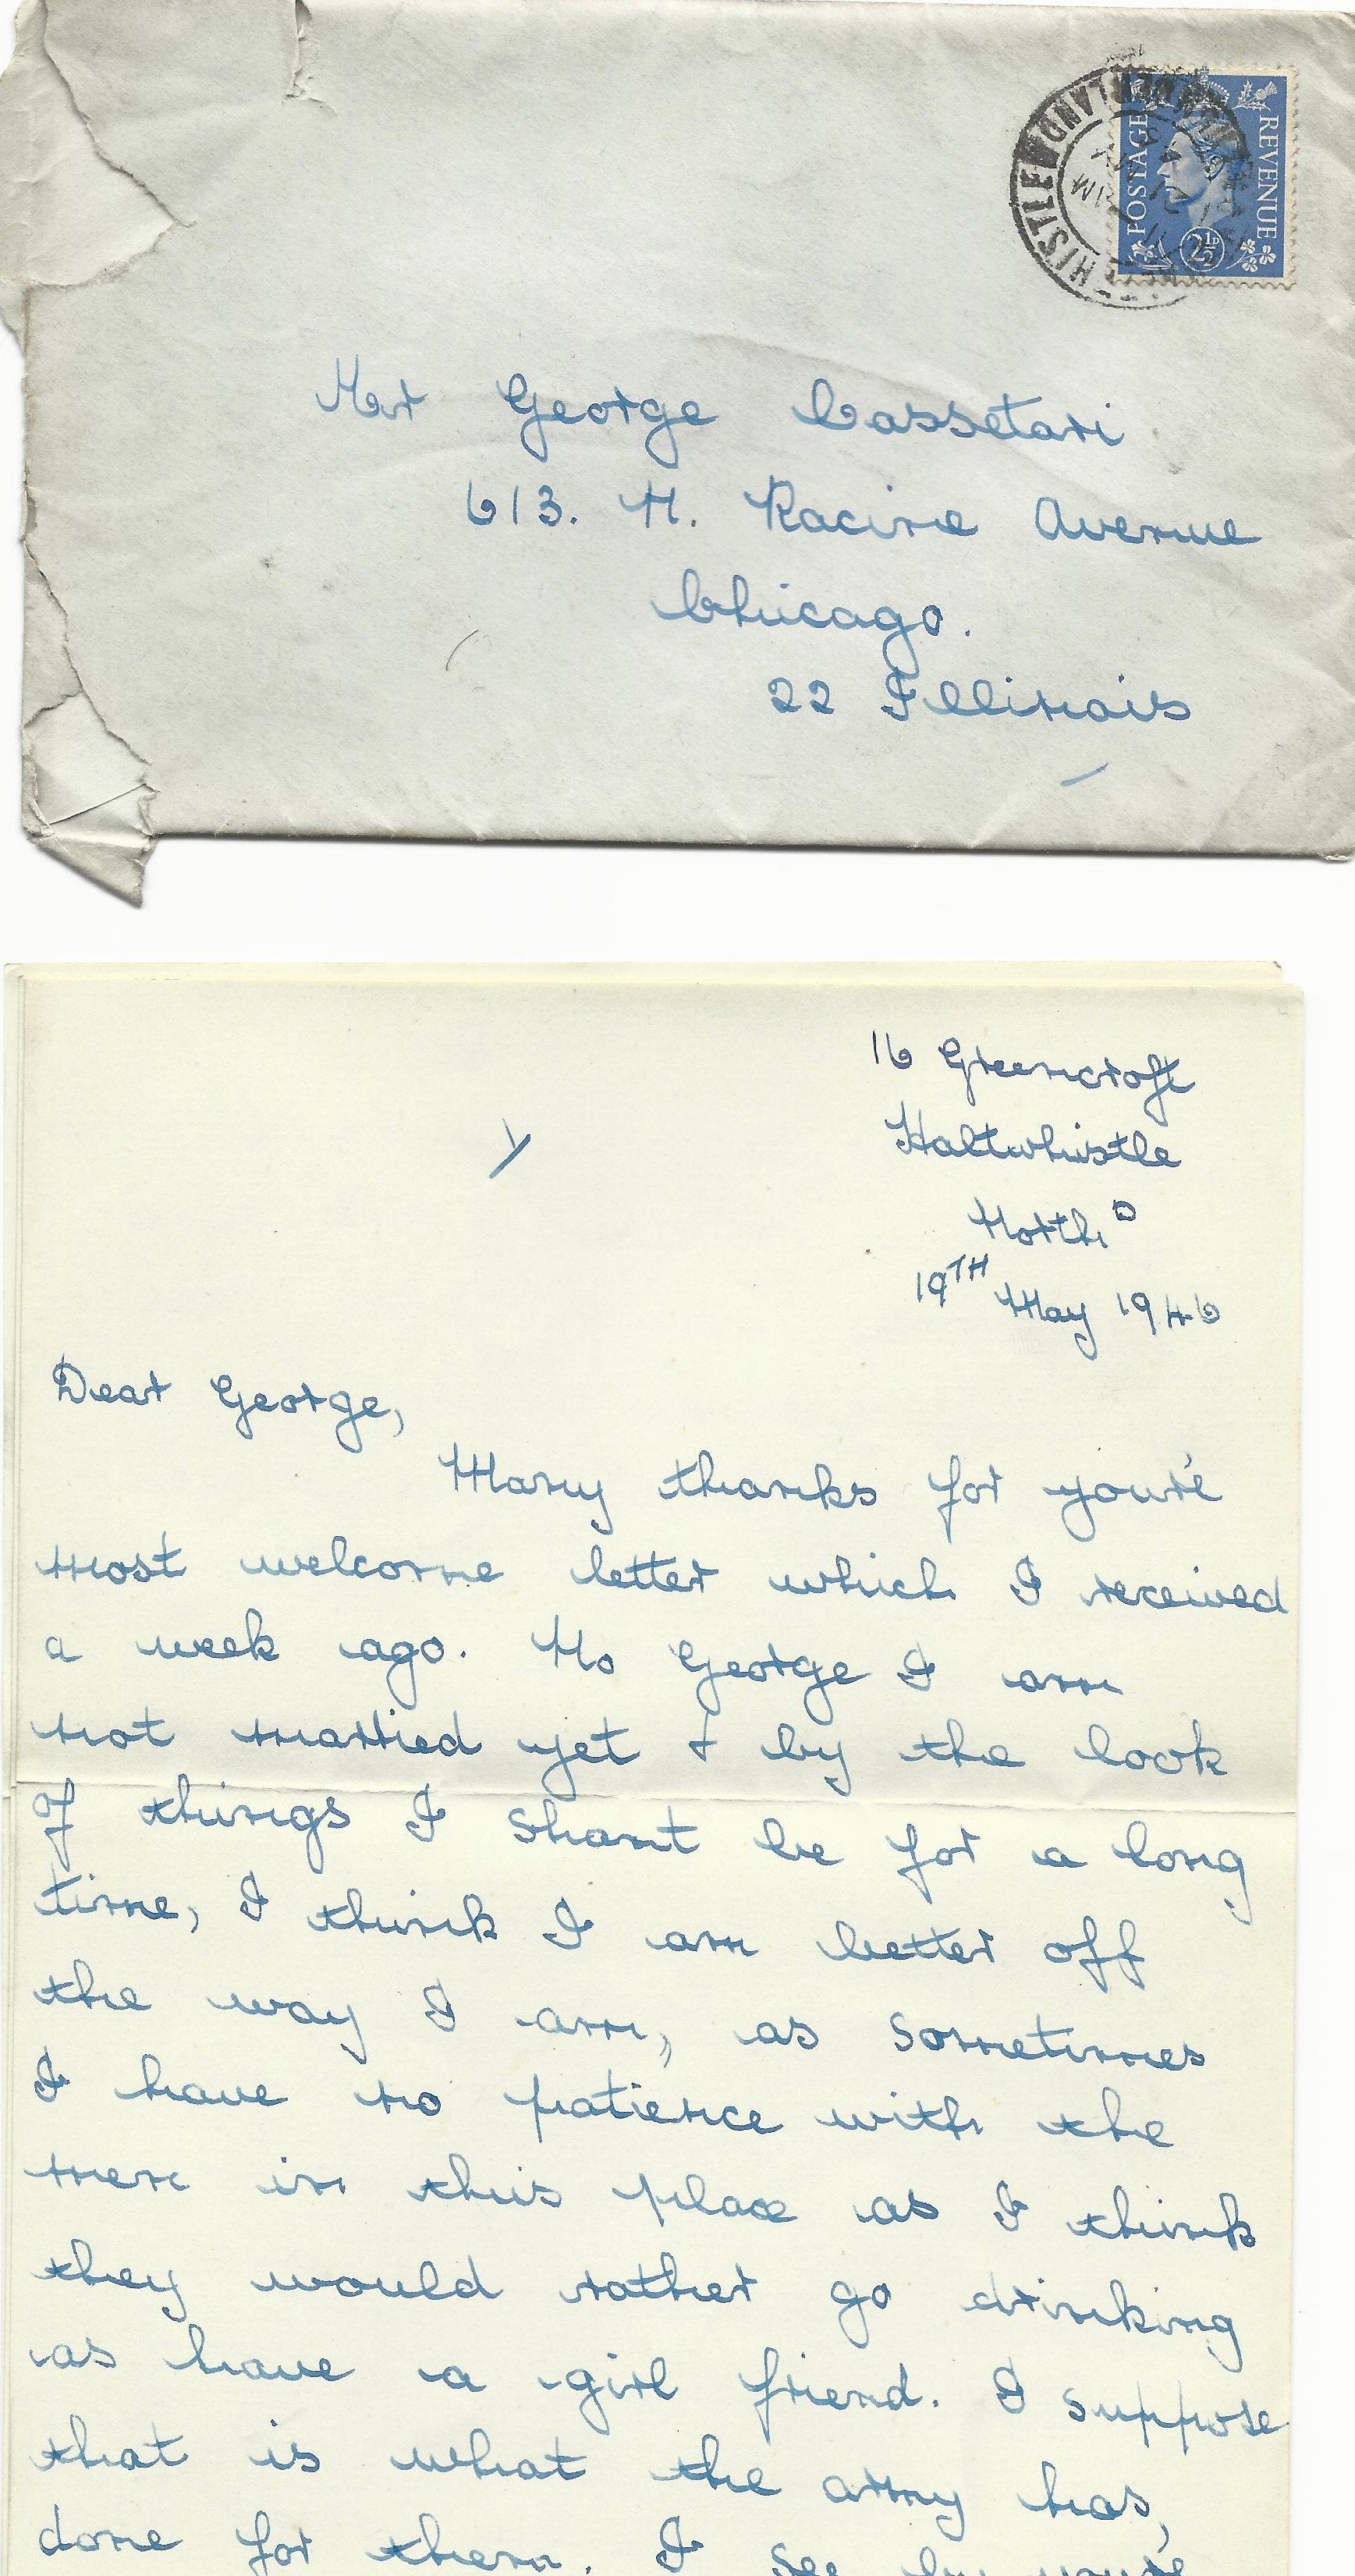 POSTAGE REVENUE
2½D
Mr George Cassetari
613. N. Racine Avenue
Chicago.
22 Illinois
16 Greencroft
Haltwhistle
North D
19TH May 1946
Dear George,
Many thanks for you're
most welcome letter which I received
a week ago. No George I am
not married yet & by the look
of things I shant be for a long
time, I think I am better off
the way I am, as sometimes
I have no patience with the
men in this place as I think
they would rather go drinking
as have a girl friend. I suppose
that is what the army has,
done for them. I see by you're